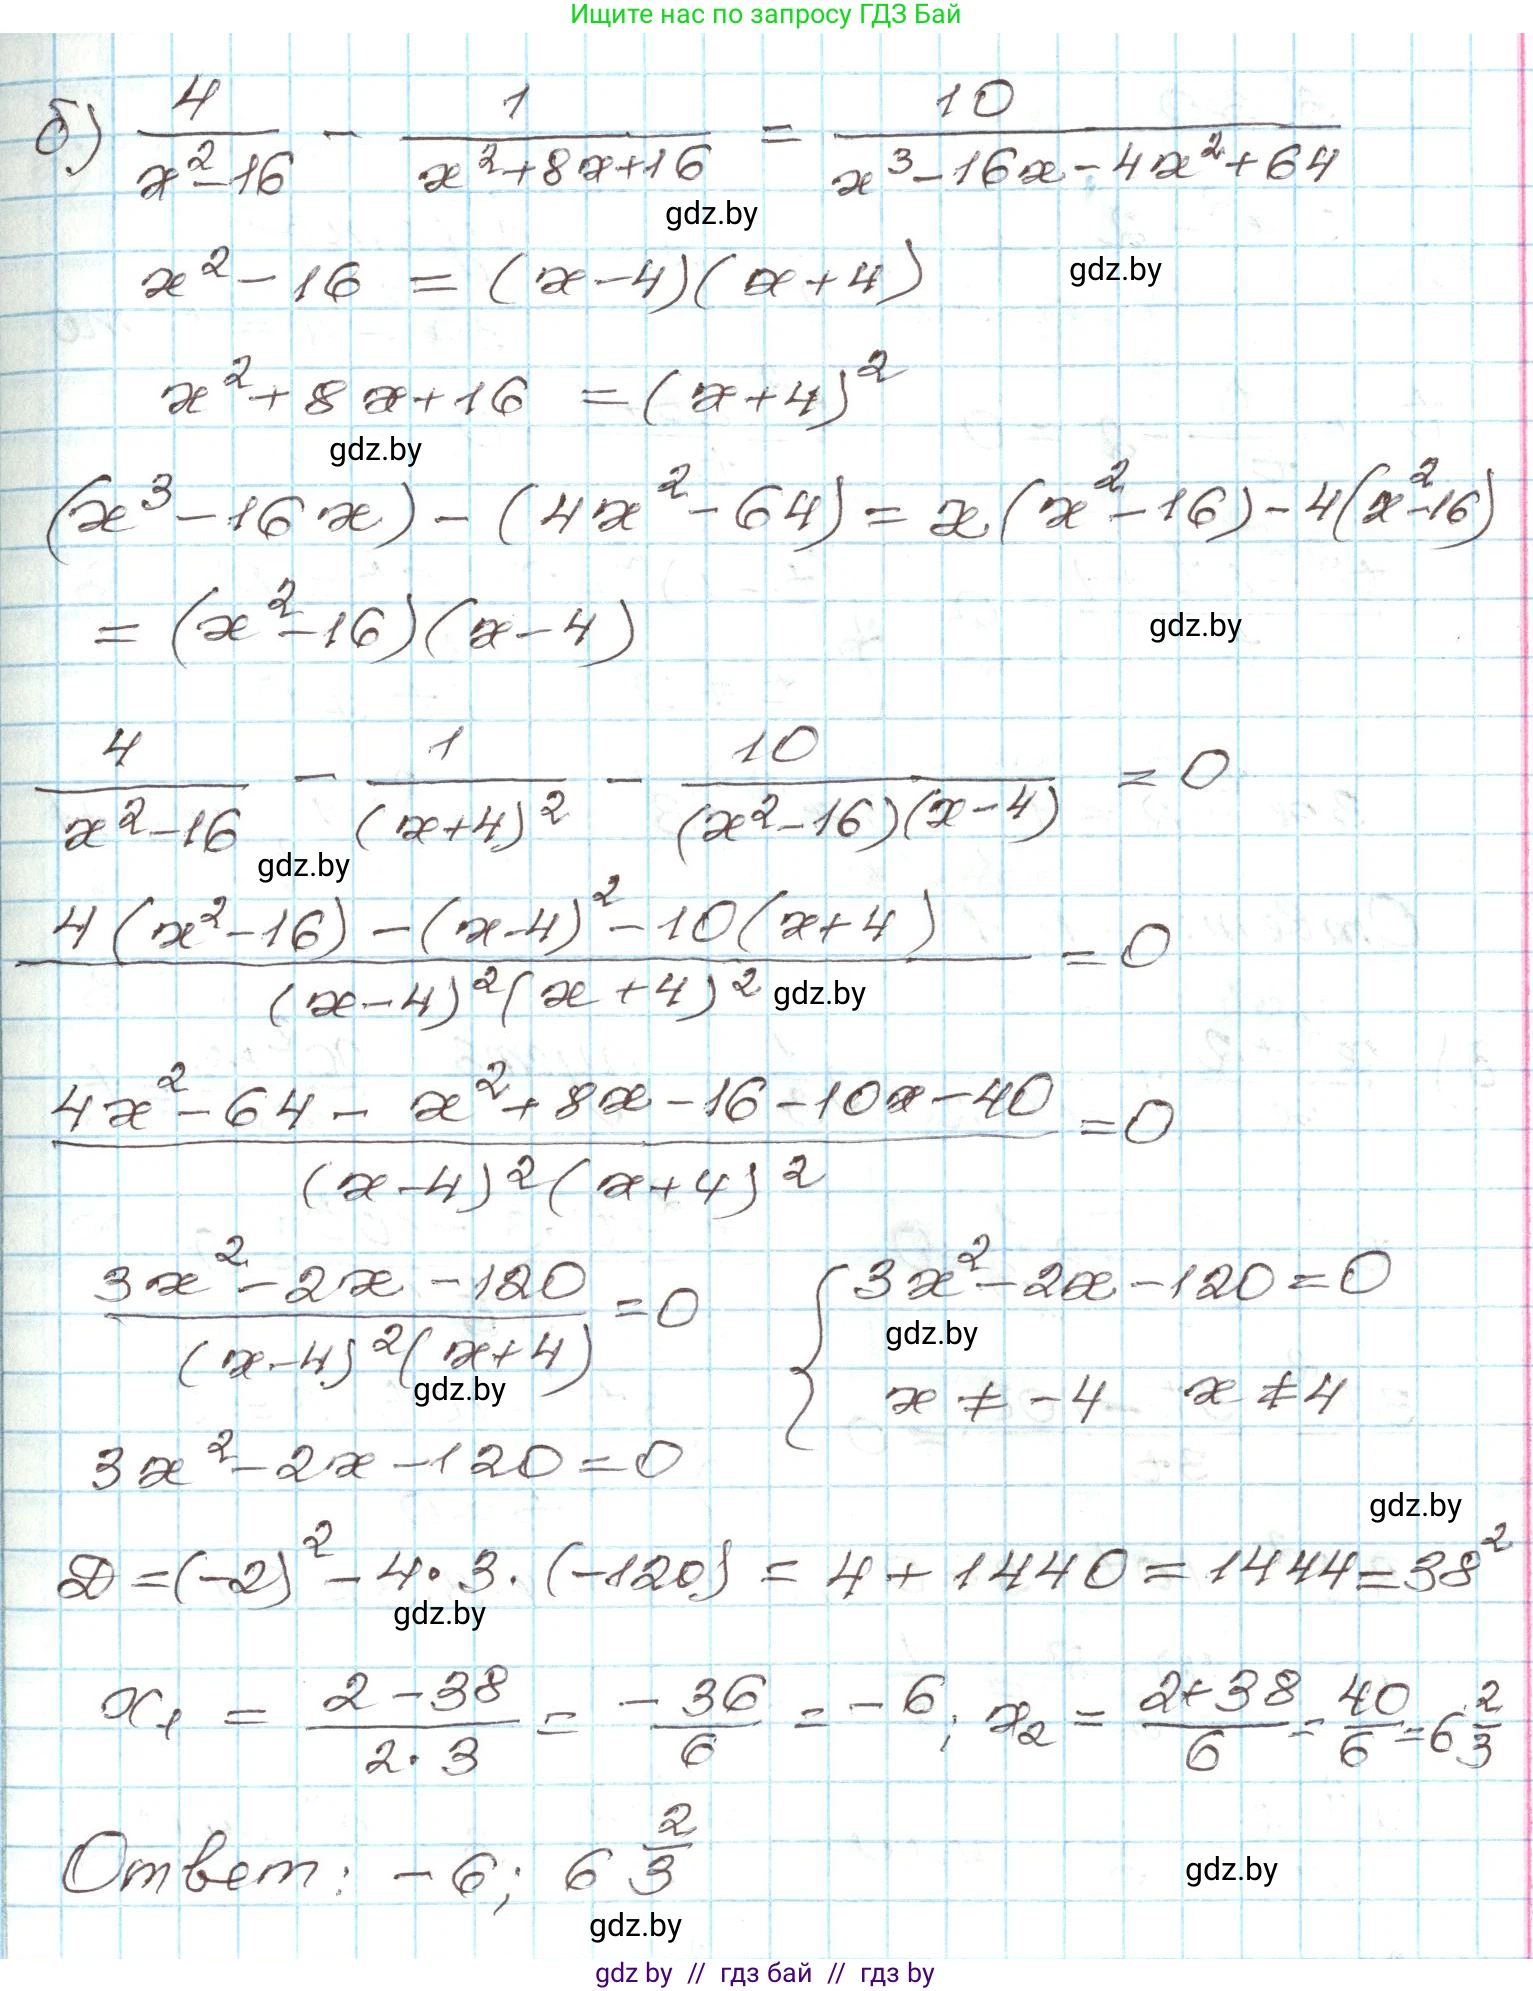 Ищите нас по запросу ГДЗ Бай
б) 4/(x²-16) - 1/(x²+8x+16) = 10/(x³-16x-4x²+64)
gdz.by
x²-16 = (x-4)(x+4)
gdz.by
x²+8x+16 = (x+4)²
gdz.by
(x³-16x)-(4x²-64)=x(x²-16)-4(x²-16)
=(x²-16)(x-4)
gdz.by
4/(x²-16) - 1/(x+4)² - 10/((x²-16)(x-4)) = 0
gdz.by
(4(x²-16)-(x-4)²-10(x+4))/((x-4)²(x+4)²) = 0
gdz.by
(4x²-64-x²+8x-16-10x-40)/((x-4)²(x+4)²) = 0
(3x²-2x-120)/((x-4)²(x+4)) = 0 { 3x²-2x-120=0
gdz.by
x ≠ -4 x ≠ 4
gdz.by
3x²-2x-120=0
gdz.by
D=(-2)²-4·3·(-120)=4+1440=1444=38²
gdz.by
x₁ = (2-38)/(2·3) = -36/6 = -6; x₂ = (2+38)/6 = 40/6 = 6 2/3
Ответ: -6; 6 2/3
gdz.by
gdz.by
gdz by // гдз бай // гдз by